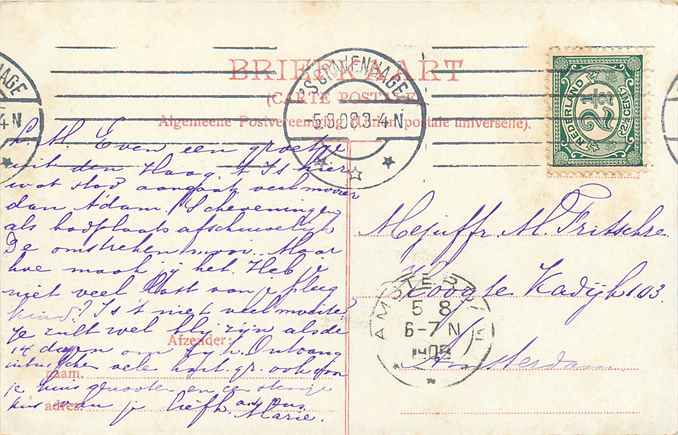 BRIEFKAART
(CARTE POSTALE)
Algemeene Postvereeniging (Union postale universelle).
'S-GRAVENHAGE
5.8.08 3-4N
HAGE
-4 N
NEDERLAND
2½
2½ CENT
L. M. Even een groetje
uit den Haag. 't Is hier
wat stad aangaat veel mooier
dan Adam. Scheveningen
als badplaats afschuwelijk
De omstreken mooi. Maar
hoe maak jij het. Heb je
niet veel last van je pleeg
kind? Is 't niet veel moeite?
Je zult wel blij zijn als de
14 dagen om zijn. Ontvang
intusschen vele hart. gr. ook van
je huisgenooten en een stevige
kus van je liefh.
Marie.
Mejuffr. M. Fritschre
Hoogte Kadijk 103.
Amsterdam
AMSTERDAM
5 8
6-7 N
1908
Afzender:
naam.
adres.